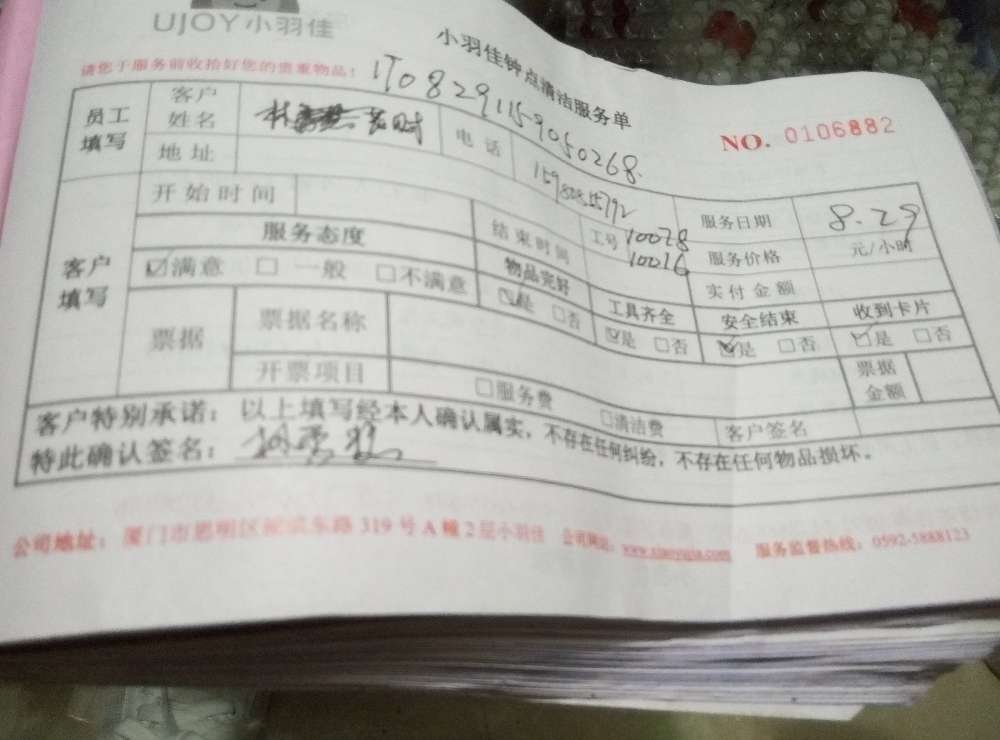 UJOY小羽佳
小羽佳钟点清洁服务单
请您于服务前收拾好您的贵重物品!
1708291159050268
NO. 0106882
员工填写
客户姓名 林
电话
服务日期 8.29
地址
工号 10028
10016
服务价格 元/小时
客户填写
开始时间
结束时间
实付金额
服务态度
物品完好
工具齐全
安全结束
收到卡片
☑满意 □一般 □不满意
☑是 □否
☑是 □否
☑是 □否
☑是 □否
票据
票据名称
票据金额
开票项目
□服务费
□清洁费
客户签名
客户特别承诺:以上填写经本人确认属实,不存在任何纠纷,不存在任何物品损坏。
特此确认签名:
公司地址:厦门市思明区 东路319号A幢2层小羽佳 公司网址:www.xiaoyujia.com 服务监督热线:0592-5888123